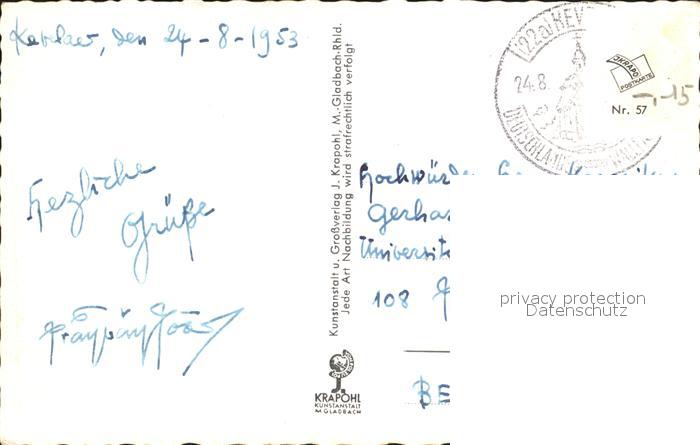 Kevelaer, den 24-8-1953
Herzliche
Grüße
Kunstanstalt u. Großverlag J. Krapohl, M.-Gladbach-Rhld.
Jede Art Nachbildung wird strafrechtlich verfolgt
J.
KRAPOHL
KUNSTANSTALT
M GLADBACH
(22a) KEV
24.8.
JKRAPO
POSTKARTE
Nr. 57
-,15
Hochwürde
Gerha
Universitä
108
BE
privacy protection
Datenschutz